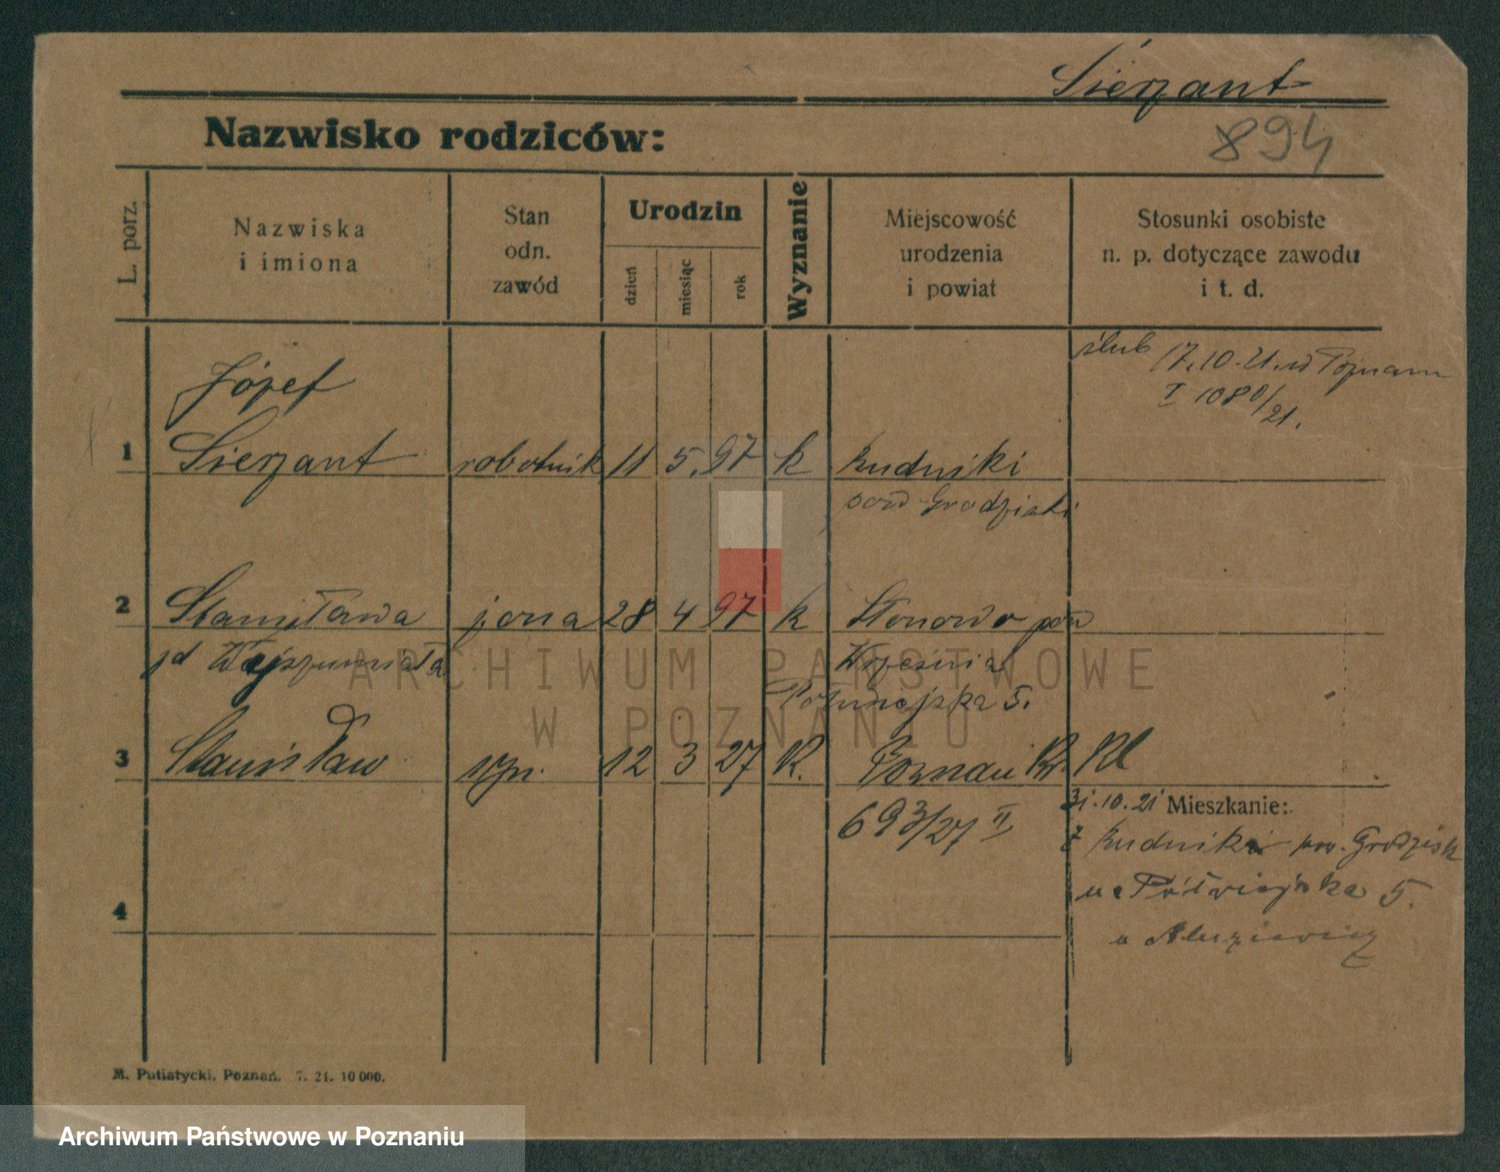 Sierżant
894
Nazwisko rodziców:
L. porz.
Nazwiska i imiona
Stan odn. zawód
Urodzin
dzień
miesiąc
rok
Wyznanie
Miejscowość urodzenia i powiat
Stosunki osobiste n. p. dotyczące zawodu i t. d.
ślub 17.10.21. w Poznaniu
I 1080/21.
Józef
1 Sierżant robotnik 11 5. 97 k Rudniki
pow Grodziski
2 Stanisława żona 28 4 97 k pow
zd
Września
5.
3 Stanisław syn. 12 3 27 K. Poznań
693/27 II
31.10.21 Mieszkanie:
z Rudniki pow. Grodzisk
na Półwiejska 5.
u
4
M. Putiatycki, Poznań. 7. 21. 10 000.
ARCHIWUM PAŃSTWOWE
W POZNANIU
Archiwum Państwowe w Poznaniu